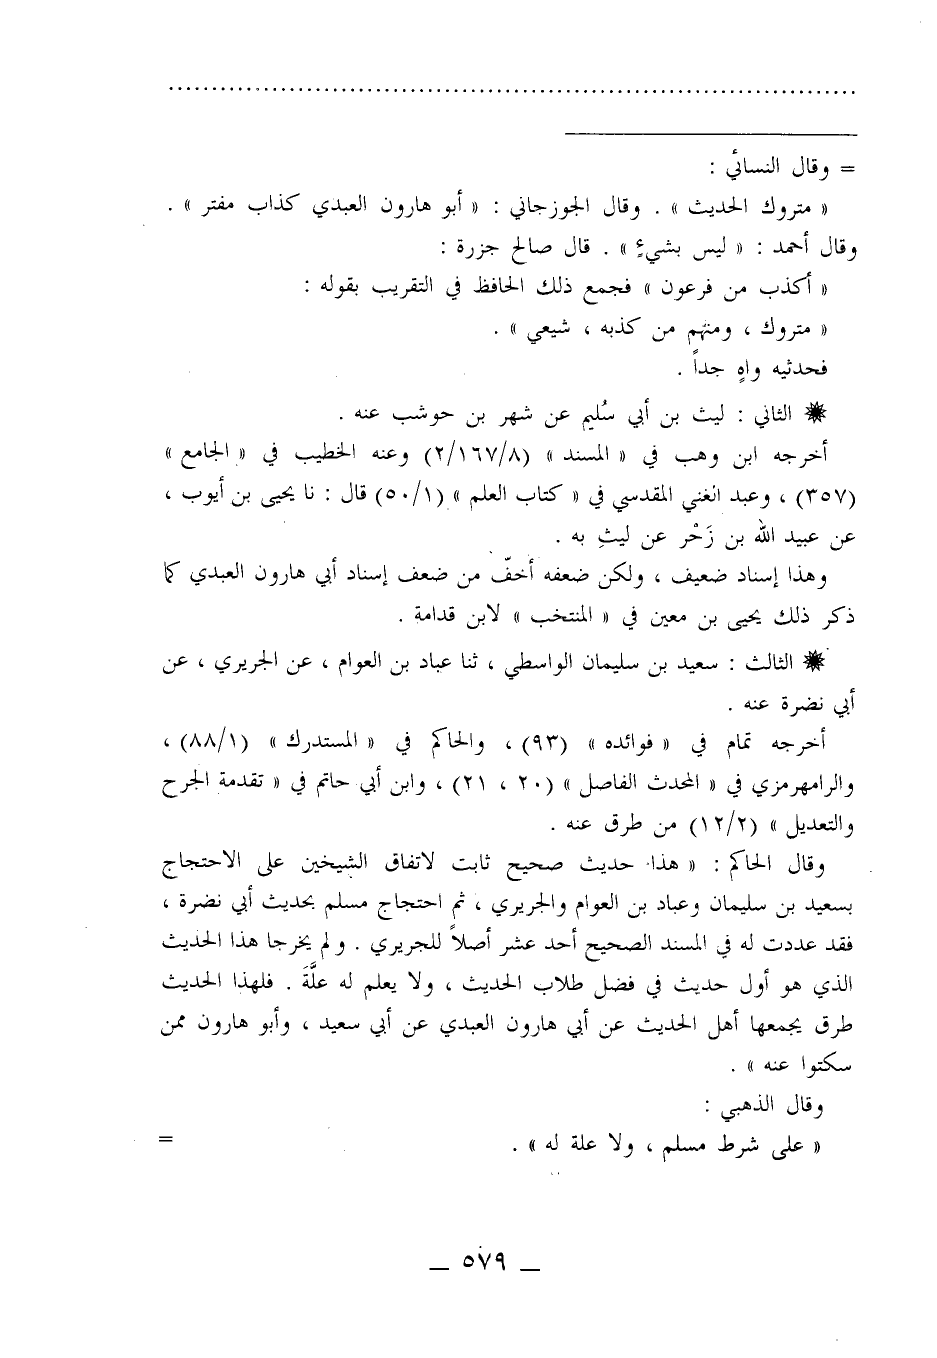 = وقال النسائي :
« متروك الحديث » . وقال الجوزجاني : « أبو هارون العبدي كذاب مفتر » .
وقال أحمد : « ليس بشيءٍ » . قال صالح جزرة :
« أكذب من فرعون » فجمع ذلك الحافظ في التقريب بقوله :
« متروك ، ومنهم من كذبه ، شيعي » .
فحدثيه واهٍ جداً .
✹ الثاني : ليث بن أبي سُليم عن شهر بن حوشب عنه .
أخرجه ابن وهب في « المسند » (٢/١٦٧/٨) وعنه الخطيب في « الجامع »
(٣٥٧) ، وعبد الغني المقدسي في « كتاب العلم » (٥٠/١) قال : نا يحيى بن أيوب ،
عن عبيد الله بن زَحْر عن ليثِ به .
وهذا إسناد ضعيف ، ولكن ضعفه أخفّ من ضعف إسناد أبي هارون العبدي كما
ذكر ذلك يحيى بن معين في « المنتخب » لابن قدامة .
✹ الثالث : سعيد بن سليمان الواسطي ، ثنا عباد بن العوام ، عن الجريري ، عن
أبي نضرة عنه .
أخرجه تمام في « فوائده » (٩٣) ، والحاكم في « المستدرك » (٨٨/١) ،
والرامهرمزي في « المحدث الفاصل » (٢٠ ، ٢١) ، وابن أبي حاتم في « تقدمة الجرح
والتعديل » (١٢/٢) من طرق عنه .
وقال الحاكم : « هذا حديث صحيح ثابت لاتفاق الشيخين على الاحتجاج
بسعيد بن سليمان وعباد بن العوام والجريري ، ثم احتجاج مسلم بحديث أبي نضرة ،
فقد عددت له في المسند الصحيح أحد عشر أصلاً للجريري . ولم يخرجا هذا الحديث
الذي هو أول حديث في فضل طلاب الحديث ، ولا يعلم له علَّةَ . فلهذا الحديث
طرق يجمعها أهل الحديث عن أبي هارون العبدي عن أبي سعيد ، وأبو هارون ممن
سكتوا عنه » .
وقال الذهبي :
« على شرط مسلم ، ولا علة له » . =
_ ٥٧٩ _